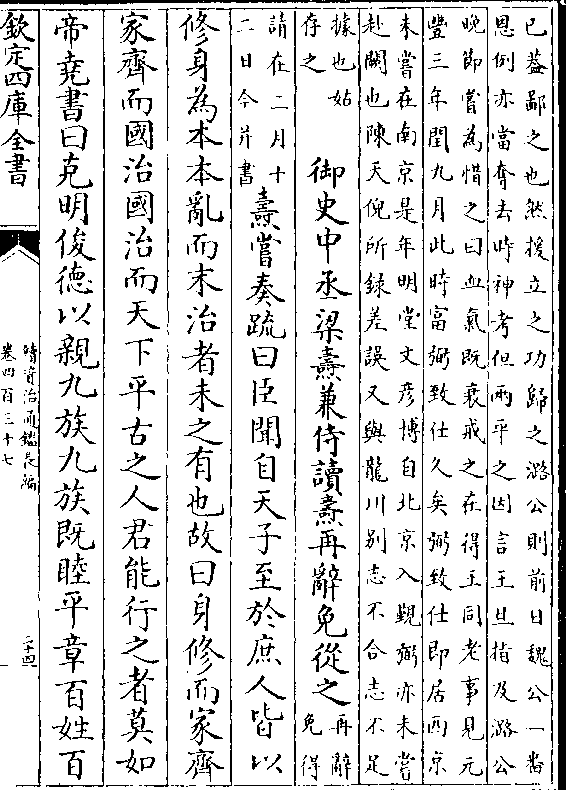 已葢鄙之也然援立之功歸之潞公則前日魏公一畨
恩例亦當奪去時神考但兩平之因言王旦指及潞公
晚節嘗為惜之曰血氣既衰戒之在得王同老事見元
豐三年閏九月此時富弼致仕久矣弼致仕即居西京
未嘗在南京是年明堂文彦博自北京入覲弼亦未嘗
赴闕也陳天倪所録差誤又與龍川别志不合志不足
據也姑
存之
御史中丞梁燾兼侍讀燾再辭免從之
再辭
免得
請在二月十
二日今并書
燾嘗奏疏曰臣聞自天子至於庶人皆以
修身為本本亂而末治者未之有也故曰身修而家齊
家齊而國治國治而天下平古之人君能行之者莫如
帝堯書曰克明俊德以親九族九族既睦平章百姓百
欽定四庫全書
續資治通鑑長編
卷四百三十七
二十四